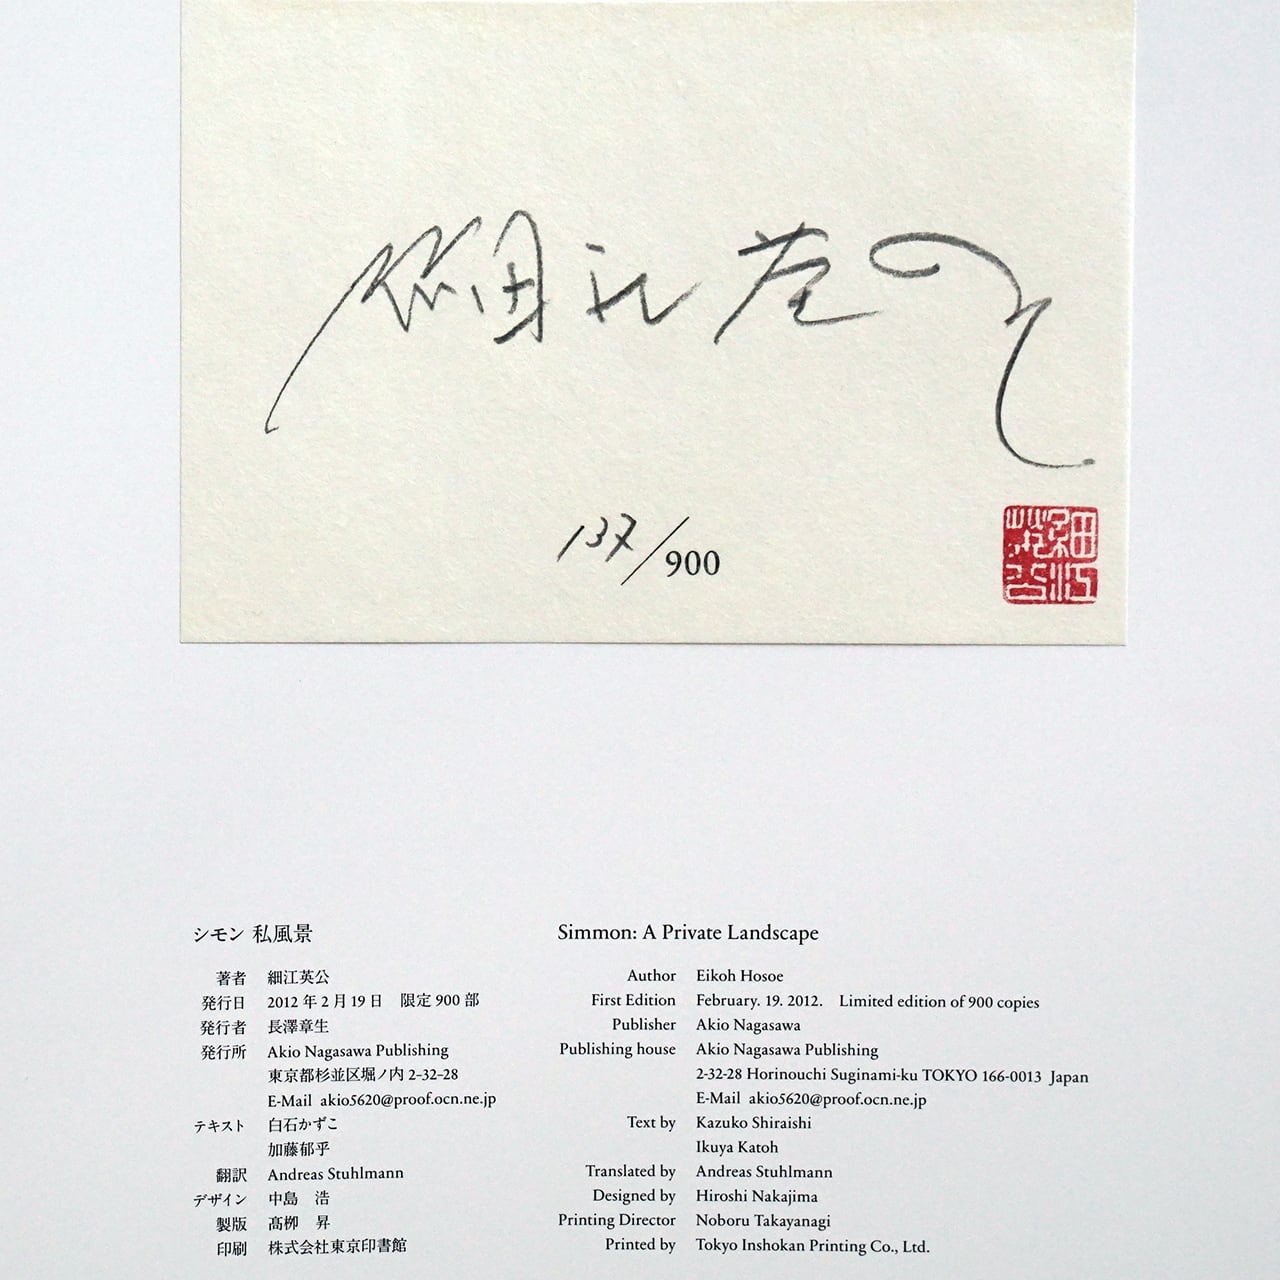 細江英公
137/900
細江英公
シモン 私風景
著者 細江英公
発行日 2012年2月19日 限定900部
発行者 長澤章生
発行所 Akio Nagasawa Publishing
東京都杉並区堀ノ内2-32-28
E-Mail akio5620@proof.ocn.ne.jp
テキスト 白石かずこ
加藤郁乎
翻訳 Andreas Stuhlmann
デザイン 中島 浩
製版 髙栁 昇
印刷 株式会社東京印書館
Simmon: A Private Landscape
Author Eikoh Hosoe
First Edition February. 19. 2012. Limited edition of 900 copies
Publisher Akio Nagasawa
Publishing house Akio Nagasawa Publishing
2-32-28 Horinouchi Suginami-ku TOKYO 166-0013 Japan
E-Mail akio5620@proof.ocn.ne.jp
Text by Kazuko Shiraishi
Ikuya Katoh
Translated by Andreas Stuhlmann
Designed by Hiroshi Nakajima
Printing Director Noboru Takayanagi
Printed by Tokyo Inshokan Printing Co., Ltd.